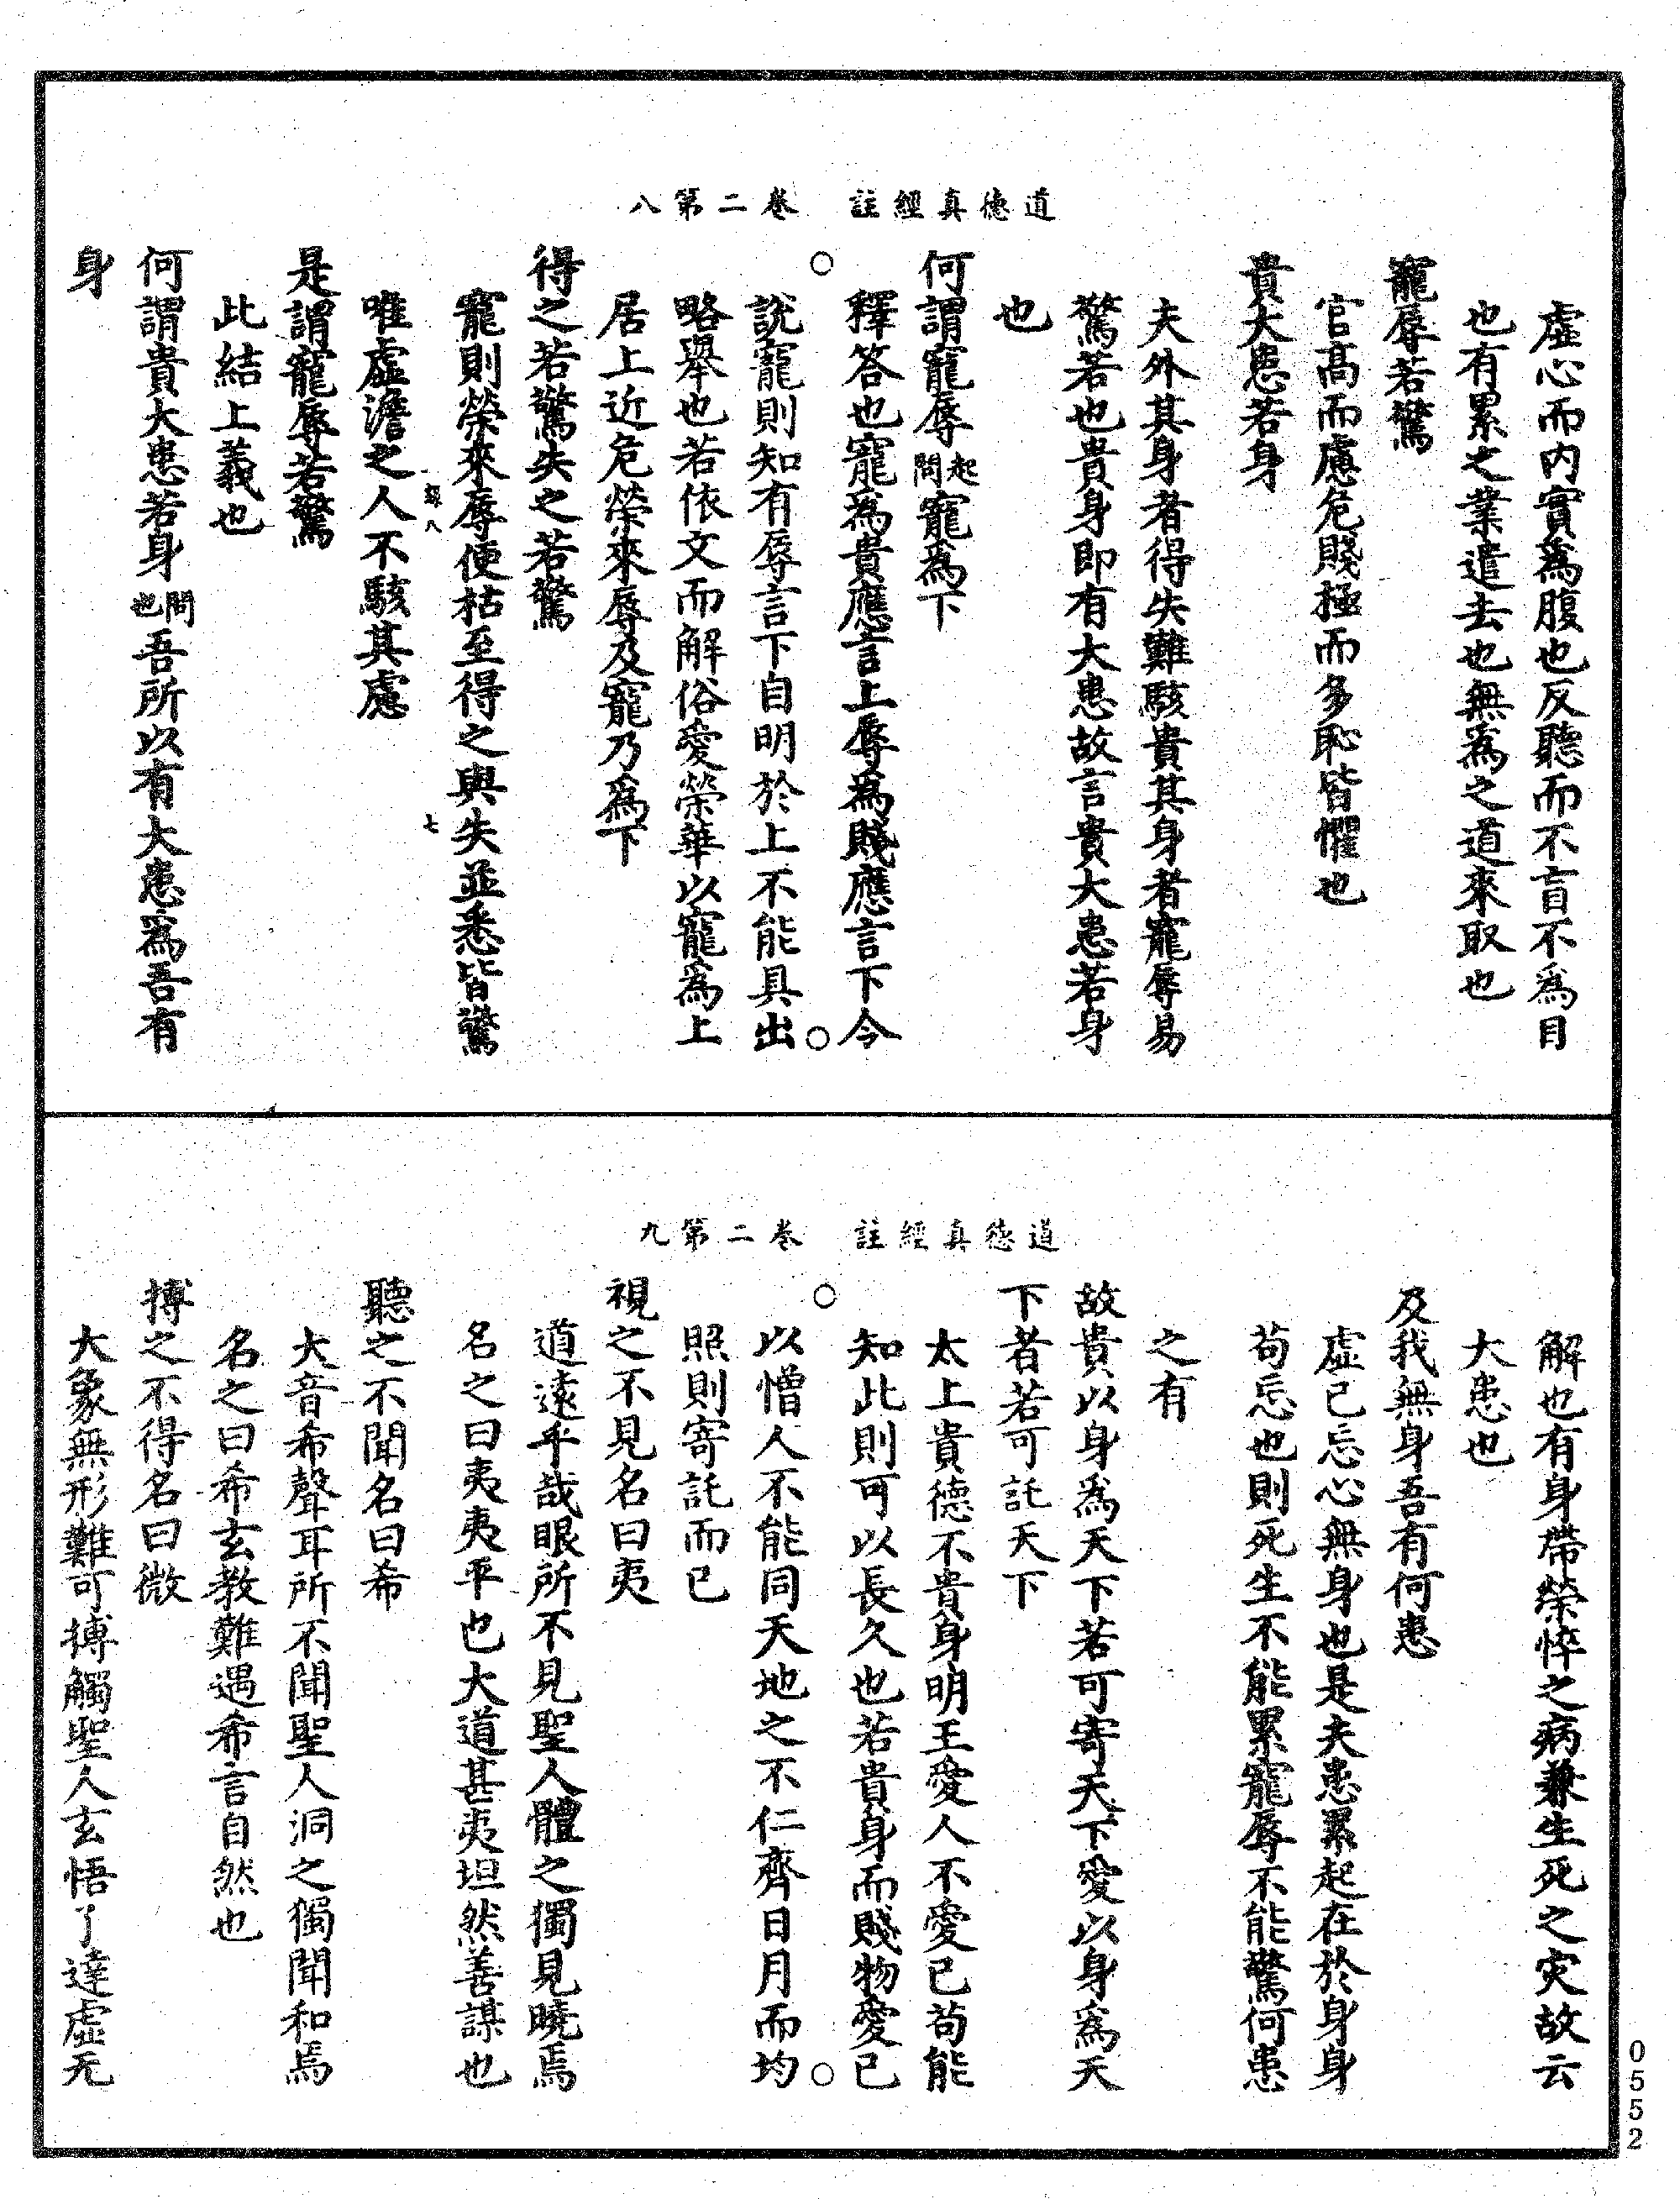 道德真經註　卷二第八
虛心而內實為腹也反聽而不盲不為目
也有累之業遣去也無為之道來取也
寵辱若驚
官高而慮危賤極而多恥皆懼也
貴大患若身
夫外其身者得失難駭貴其身者寵辱易
驚若也貴身即有大患故言貴大患若身
也
何謂寵辱起問寵為下
釋答也寵為貴應言上辱為賤應言下今
說寵則知有辱言下自明於上不能具出
略舉也若依文而解俗愛榮華以寵為上
居上近危榮來辱及寵乃為下
得之若驚失之若驚
寵則榮來辱便枯至得之與失並悉皆驚
八　七
唯虛澹之人不駭其慮
是謂寵辱若驚
此結上義也
何謂貴大患若身問也吾所以有大患為吾有
身
道德真經註　卷二第九
解也有身帶榮悴之病兼生死之灾故云
大患也
及我無身吾有何患
虛己忘心無身也是夫患累起在於身身
苟忘也則死生不能累寵辱不能驚何患
之有
故貴以身為天下若可寄天下愛以身為天
下者若可託天下
太上貴德不貴身明王愛人不愛己苟能
知此則可以長久也若貴身而賤物愛己
以憎人不能同天地之不仁齊日月而均
照則寄託而已
視之不見名曰夷
道遠乎哉眼所不見聖人體之獨見曉焉
名之曰夷夷平也大道甚夷坦然善謀也
聽之不聞名曰希
大音希聲耳所不聞聖人洞之獨聞和焉
名之曰希玄教難遇希言自然也
搏之不得名曰微
大象無形難可搏觸聖人玄悟了達虛无
0552